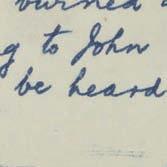 burned
g to John
be heard